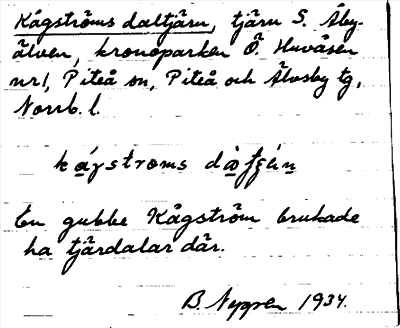 Kågströms daltjärn, tjärn S. Åby-
älven, kronoparken Ö. Huvåsen
nr 1, Piteå sn, Piteå och Älvsby tg,
Norrb. l.
kågstroms
En gubbe Kågström brukade
ha tjärdalar där.
B. Nygren 1934.